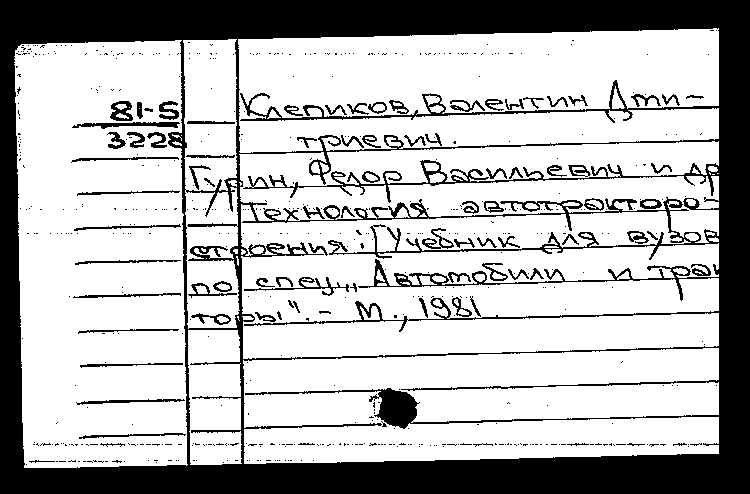 81-5
3228
Клепиков, Валентин Дми-
триевич.
Гурин, Федор Васильевич и др
Технология автотракторо-
строения: [Учебник для вузов
по спец. „Автомобили и трак
торы". - М., 1981.